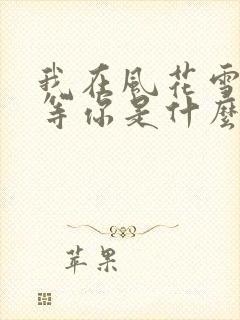 我在風花雪
等你是什麼
苹果